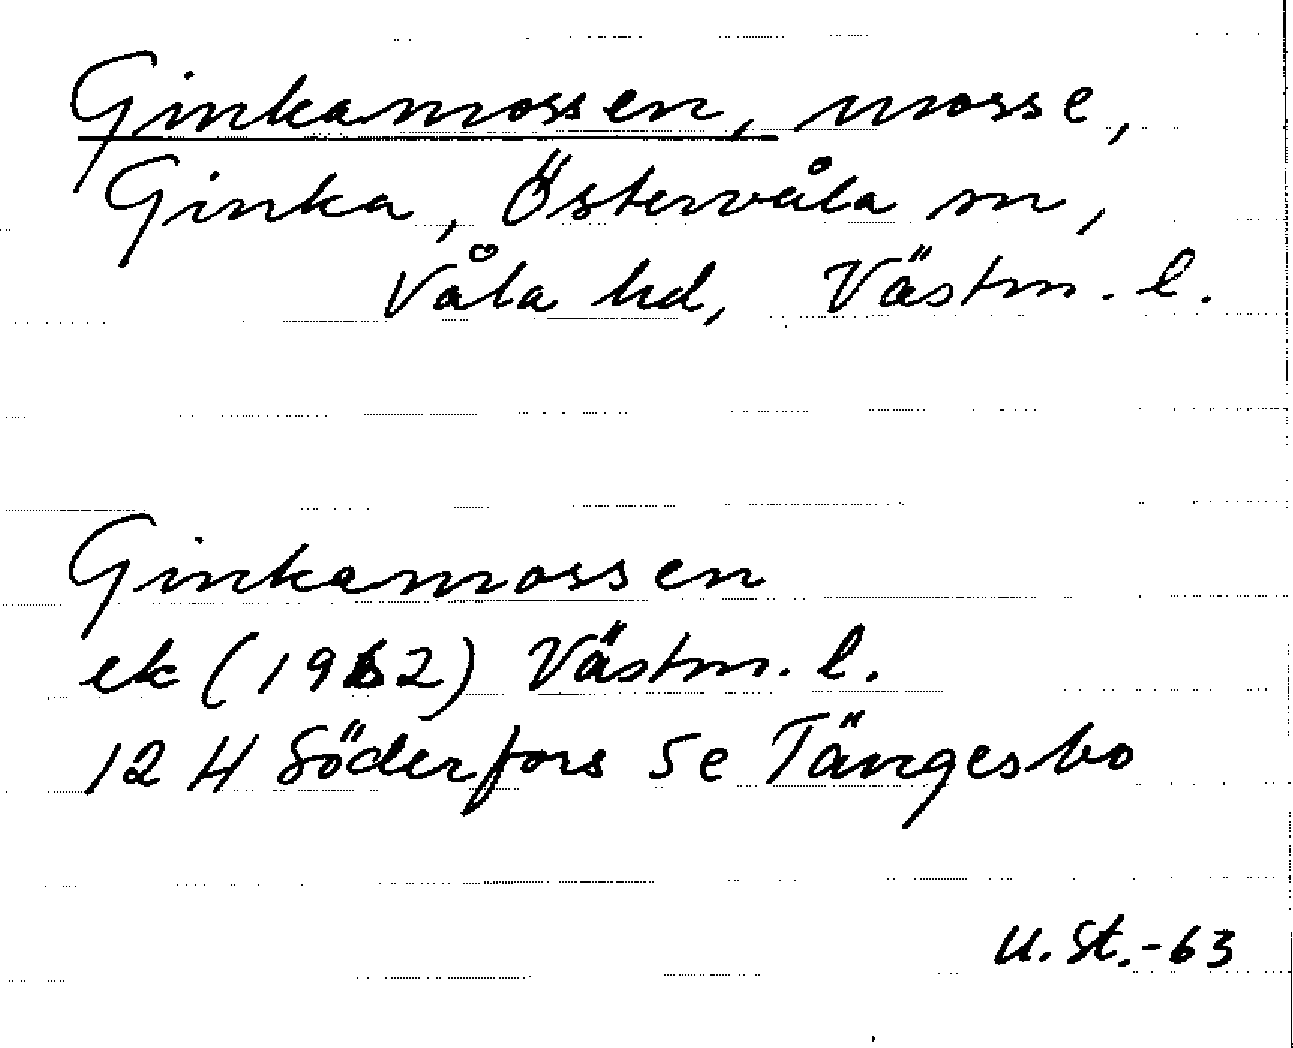 Ginkamossen, mosse,
Ginka, Östervåla sn,
Våla hd, Västm. l.
Ginkamossen
ek (1962) Västm. l.
12 H Söderfors 5e Tängesbo
U. St. -63